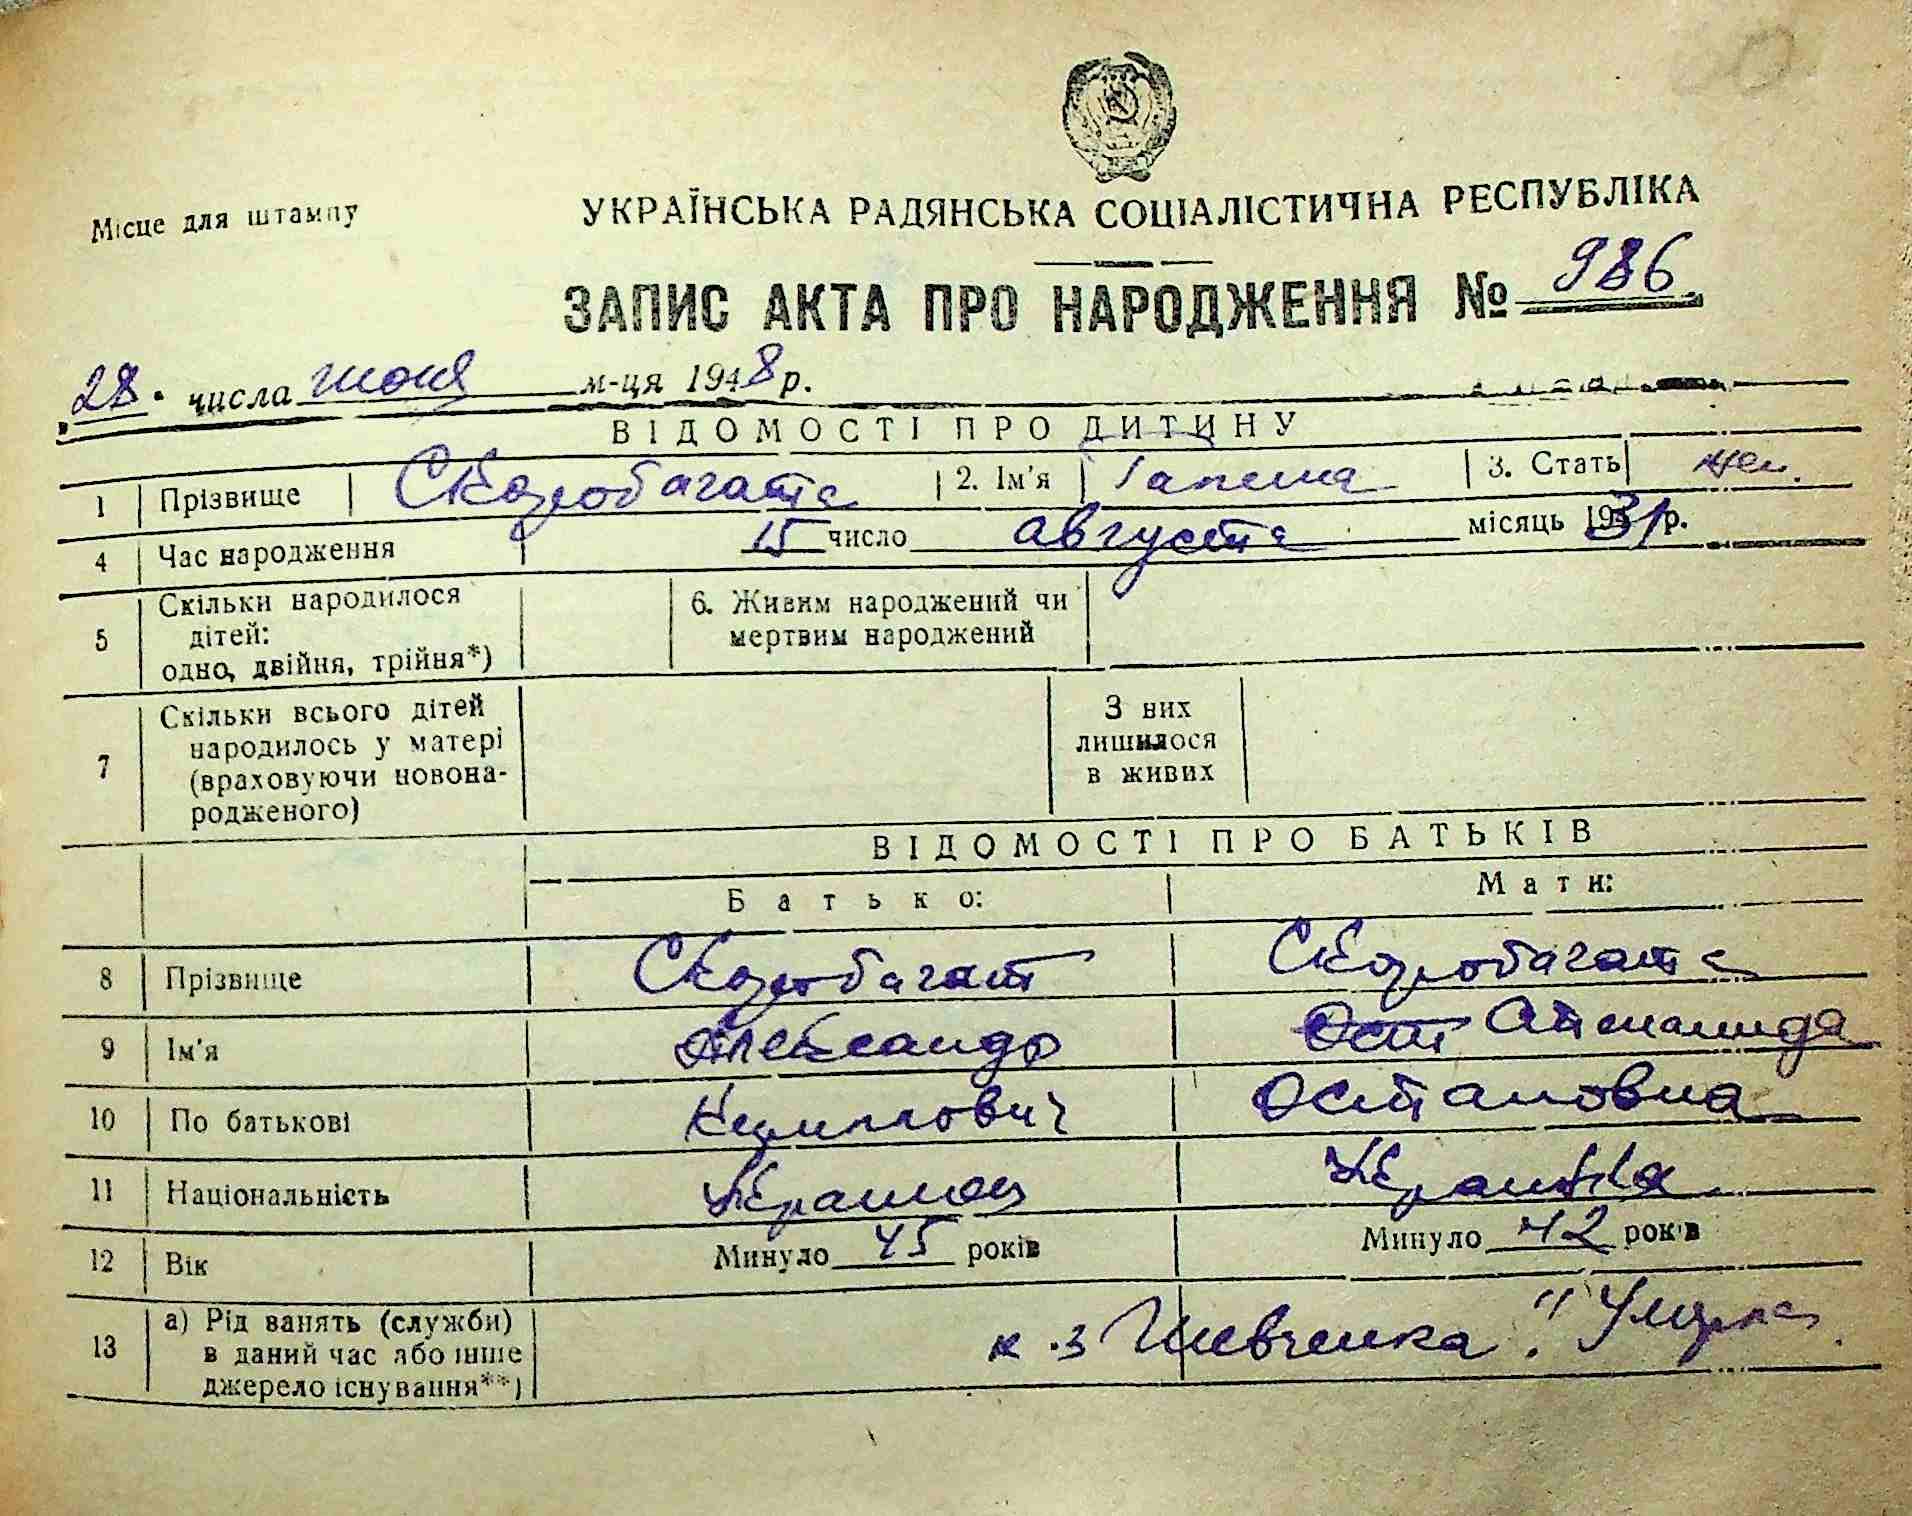 Місце для штампу
УКРАЇНСЬКА РАДЯНСЬКА СОЦІАЛІСТИЧНА РЕСПУБЛІКА
ЗАПИС АКТА ПРО НАРОДЖЕННЯ № 986
28. числа июня м-ця 1948 р.
ВІДОМОСТІ ПРО ДИТИНУ
1 Прізвище Скоробагата 2. Ім'я Галина 3. Стать жен.
4 Час народження 15 число августа місяць 1931 р.
5 Скільки народилося дітей: одно, двійня, трійня*) 6. Живим народжений чи мертвим народжений
7 Скільки всього дітей народилось у матері (враховуючи новона-родженого) З них лишилося в живих
ВІДОМОСТІ ПРО БАТЬКІВ
Батько: Мати:
8 Прізвище Скоробагат Скоробагата
9 Ім'я Александр
10 По батькові Кириллович Остаповна
11 Національність Украинец Украинка
12 Вік Минуло 45 років Минуло 42 років
13 а) Рід занять (служби) в даний час або інше джерело існування**) к-з Шевченка